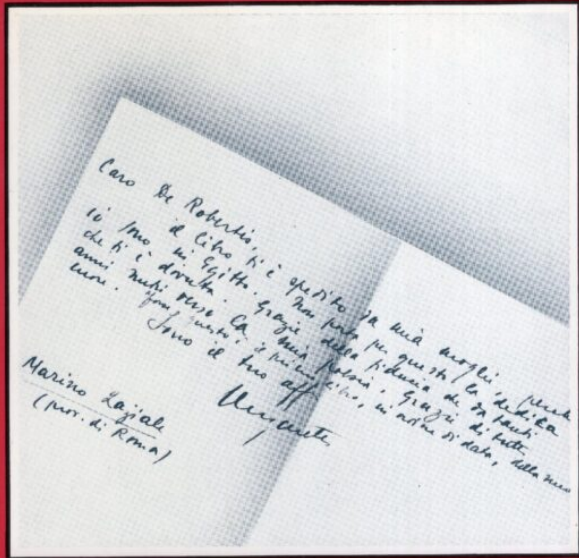 Caro De Robertis,
il libro ti è spedito da mia moglie, perché
io sono in Egitto. Non porta per questo la dedica
che ti è dovuta. Grazie della fiducia che da tanti
anni nutri verso la mia poesia. Grazie di tutto
cuore. questo, è il primo libro, in ordine di data, della
Sono il tuo aff
Ungaretti
Marino Laziale
(prov. di Roma)